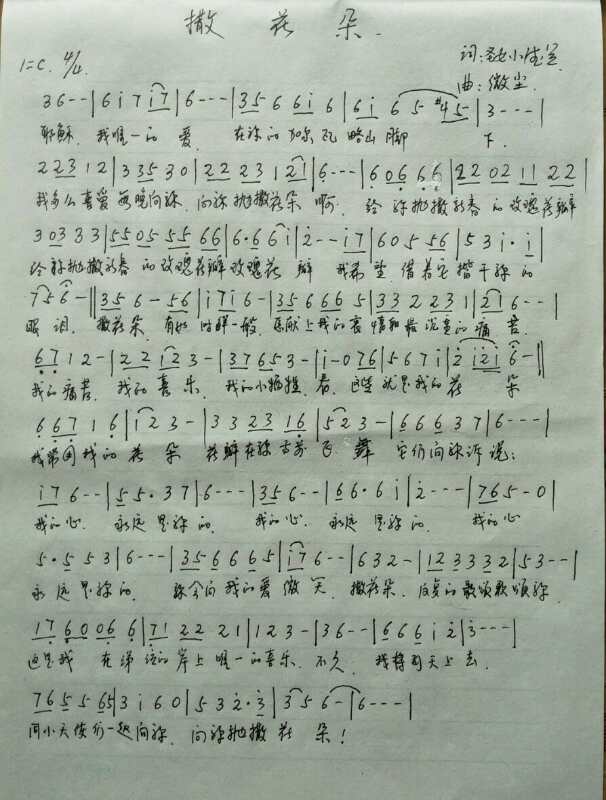 撒花朵.
1=C. 4/4 词:圣女小德兰.
曲:微尘.
36--|6i7i7|6---|35 6 6i6|6i 65 #45|3---|
耶稣. 我唯一的 爱. 在祢的加尔瓦略山脚 下.
22312|33530|2223121|6---|60666|22021122|
我多么喜爱每晚向祢. 向祢抛撒花朵 啊. 给祢抛撒新春的玫瑰花瓣
30333|550555566|6·66i|2--i7|605 56|53i·i|
给祢抛撒新春的玫瑰花瓣玫瑰花 瓣 我希望.借着它揩干祢的
756-||356-56|i7i6-|356665|3322231|216--|
眼泪. 撒花朵. 有如 一般.奉献上我的哀 沉重的痛 苦
6712-|22123-|37653-|i-076|567i|2i2i6-||
我的痛苦. 我的喜乐. 我的小牺牲. 这些就是我的花 朵
66716|i23-|3323 16|523-|666637|6---|
我的花 朵 花瓣在祢 飞 舞 它们向祢诉说:
i76--|55·37|6---|356--|66·6i|2---|765-0|
我的心. 永远是祢的. 我的心. 永远是祢的. 我的心
5·553|6---|356665|i76--|632-|1233 32|53--|
永远是祢的. 祢会向我的爱微笑. 撒花朵. 反复的歌颂歌颂祢.
17600 66|7122 21|123-|36--|666i2|3---|
这是我 在涕泣的岸上唯一的喜乐. 不久. 我将到天上去.
765565|3i60|532·3|356-|6---|
同小天使们一起向祢. 向祢抛撒花 朵!